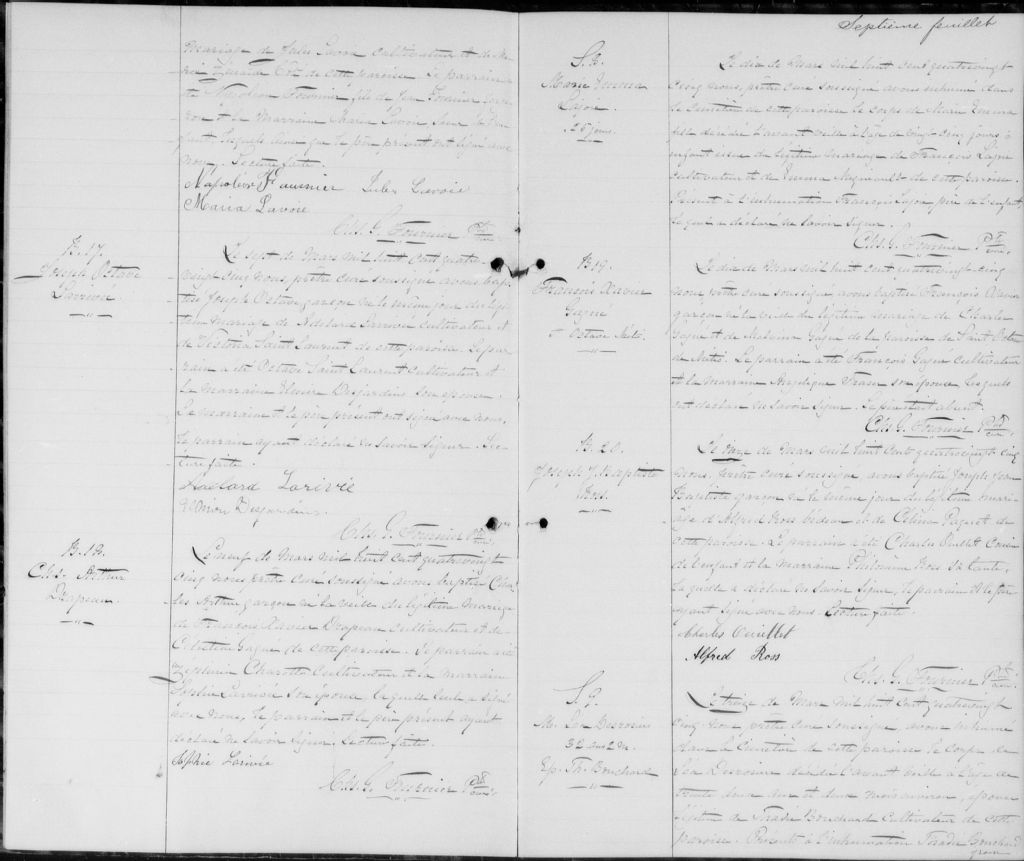 mariage de Jules Lavoie cultivateur et de
de cette paroisse. Le parrain a
été Napoléon Fournier fils de Jean Fournier
et la marraine Maria Lavoie
lesquels ainsi que le père présent ont signé avec
nous. Lecture faite.
Napoléon Fournier Jules Lavoie
Maria Lavoie
Chs. G. Fournier Ptre curé.
B. 17.
Joseph Octave
Larrivée.
Le sept de Mars mil huit cent quatre
vingt cinq nous, prêtre curé soussigné avons bap
tisé Joseph Octave garçon né le même jour du légi
time mariage de Adelard Larrivée cultivateur et
de Victoria Saint Laurent de cette paroisse. Le par
rain a été Octave Saint Laurent cultivateur et
la marraine Desjardins son épouse.
La marraine et le père présent ont signé avec nous,
le parrain ayant déclaré ne savoir signer. Lec
ture faite.
Adelard Larivée
Desjardins
Chs. G. Fournier Ptre curé.
B. 18.
Chs. Arthur
Drapeau.
Le neuf de Mars mil huit cent quatrevingt
cinq nous, prêtre curé soussigné avons baptisé Char
les Arthur garçon né la veille du légitime mariage
de François Xavier Drapeau cultivateur et de
Gagné de cette paroisse. Le parrain a été
Zéphirin Charette cultivateur et la marraine
Sophie Larrivée son épouse laquelle seule a signé
avec nous, le parrain et le père présent ayant
déclaré ne savoir signer. Lecture faite.
Sophie Larivée
Chs. G. Fournier Ptre curé.
Septième feuillet
S. 8.
Marie Emma
Gagné
25 jours.
Le dix de Mars mil huit cent quatrevingt
cinq nous, prêtre curé soussigné avons inhumé dans
le cimetière de cette paroisse le corps de Marie Emma
décédée l'avant veille à l'âge de vingt cinq jours
enfant issue du légitime mariage de François Gagné
cultivateur et de Emma Migneault de cette paroisse.
Présent à l'inhumation François Gagné père de l'enfant,
lequel a déclaré ne savoir signer.
Chs. G. Fournier Ptre curé.
B. 19.
François Xavier
Gagné
Octave Métis.
Le dix de Mars mil huit cent quatrevingt cinq
nous prêtre curé soussigné, avons baptisé François Xavier
garçon né la veille du légitime mariage de Charles
Gagné et de Malvina Gagné de la Paroisse de Saint Octave
de Métis. Le parrain a été François Gagné cultivateur
et la marraine Angélique Fraser son épouse lesquels
ont déclaré ne savoir signer. Le père était absent.
Chs. G. Fournier Ptre curé.
B. 20.
Joseph J. Baptiste
Ross.
Le onze de Mars mil huit cent quatrevingt cinq
nous, prêtre curé soussigné, avons baptisé Joseph Jean
Baptiste garçon né le même jour du légitime mari
age d'Alfred Ross bedeau et de Célina Paquet de
cette paroisse. Le parrain a été Charles Ouellet cousin
de l'enfant et la marraine Philomène Ross sa tante,
laquelle a déclaré ne savoir signer, le parrain et le père
ayant signé avec nous. Lecture faite
Charles Ouellet
Alfred Ross
Chs. G. Fournier Ptre curé.
S. 9.
M. Léa Desrosiers
32 ans 2 m.
Ep. Th. Bouchard
Le treize de Mars mil huit cent quatrevingt
cinq nous prêtre curé soussigné, avons inhumé
dans le cimetière de cette paroisse le corps de
Léa Desrosiers décédée l'avant veille à l'âge de
trente deux ans et deux mois environ, épouse
légitime de Thadée Bouchard cultivateur de cette
paroisse. Présents à l'inhumation Thadée Bouchard